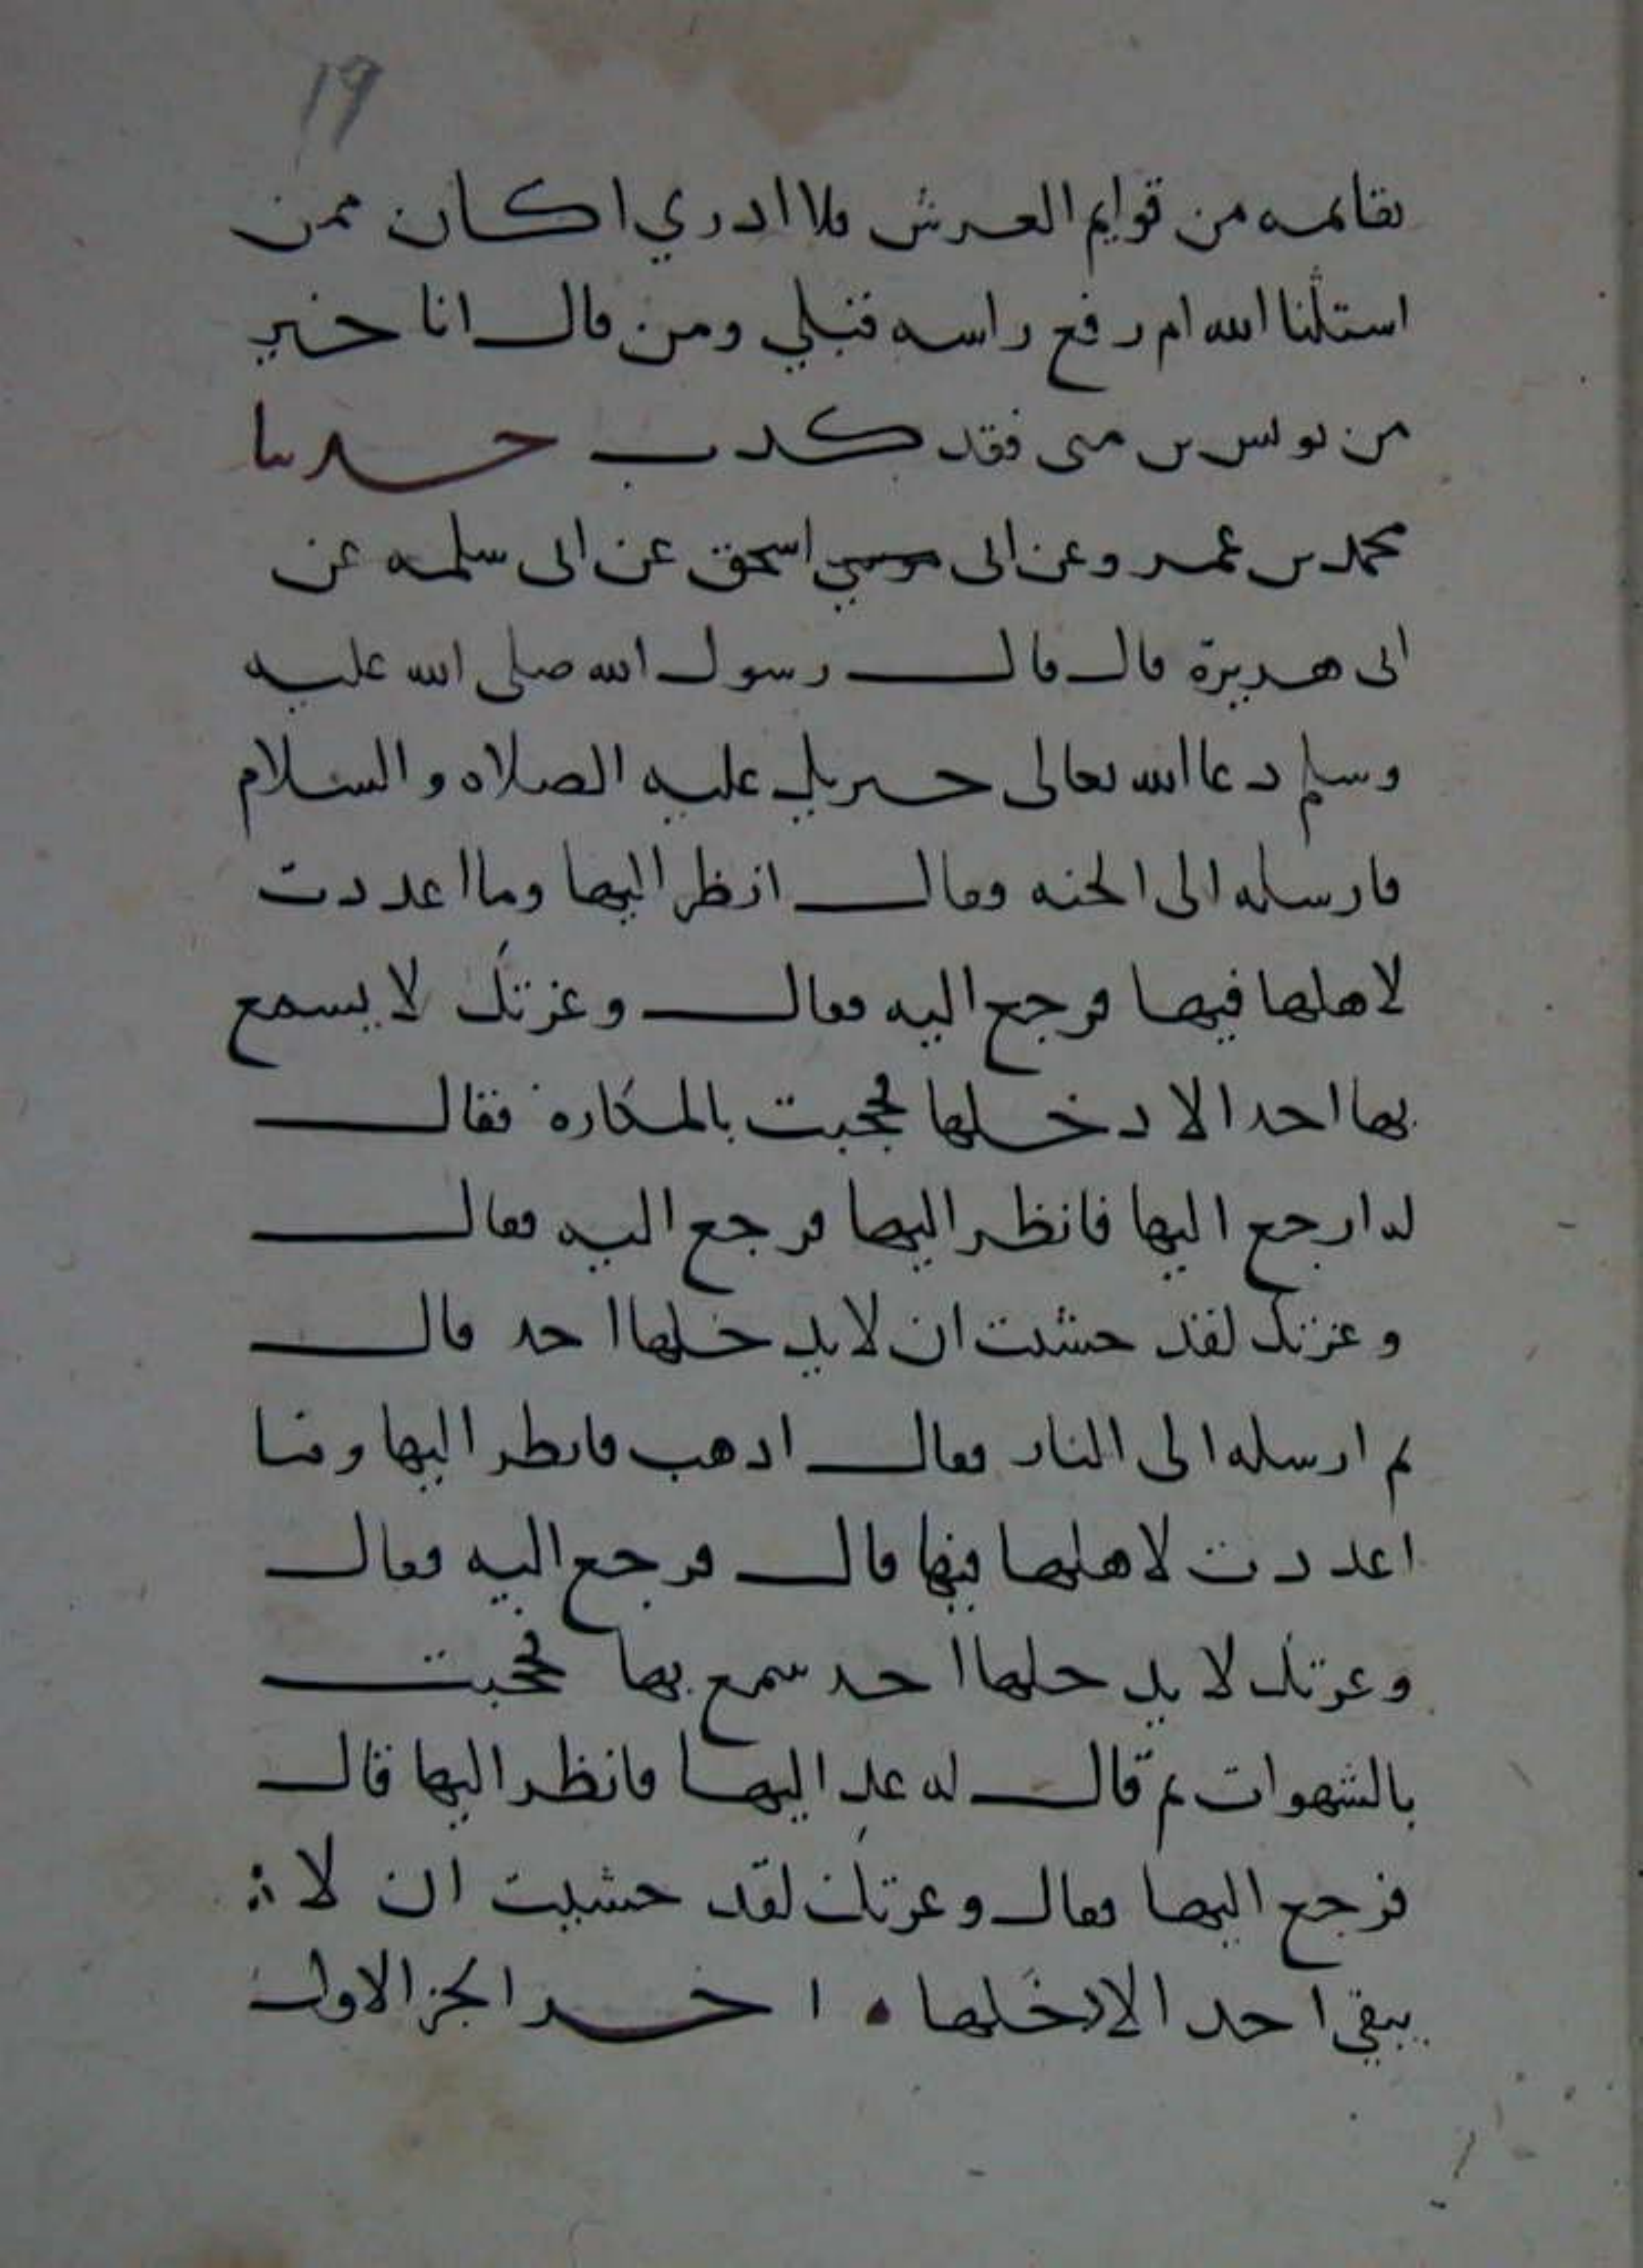 19
بقائمه من قوايم العرش فلا ادري اكان ممن
استثنا الله ام رفع راسه قبلي ومن قال انا خير
من يونس بن متى فقد كذب حدثنا
محمد بن عمرو عن ابى اسحق عن ابى سلمه عن
ابى هريرة قال قال رسول الله صلى الله عليه
وسلم دعا الله تعالى جبريل عليه الصلاه والسلام
فارسله الى الجنه وقال انظر اليها وما اعددت
لاهلها فيها فرجع اليه فقال وعزتك لا يسمع
بها احد الا دخلها فحجبت بالمكاره فقال
له ارجع اليها فانظر اليها فرجع اليه فقال
وعزتك لقد خشيت ان لا يدخلها احد قال
ثم ارسله الى النار فقال اذهب فانظر اليها وما
اعددت لاهلها فيها قال فرجع اليه فقال
وعزتك لا يدخلها احد سمع بها فحجبت
بالشهوات ثم قال له عد اليها فانظر اليها قال
فرجع اليها فقال وعزتك لقد خشيت ان لا
يبقى احد الا دخلها اخر الجز الاول